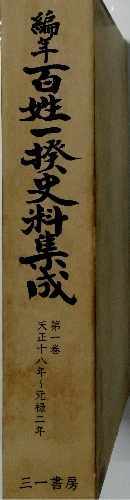 編年百姓一揆史料集成
第一巻
天正十八年~元禄二年
三一書房